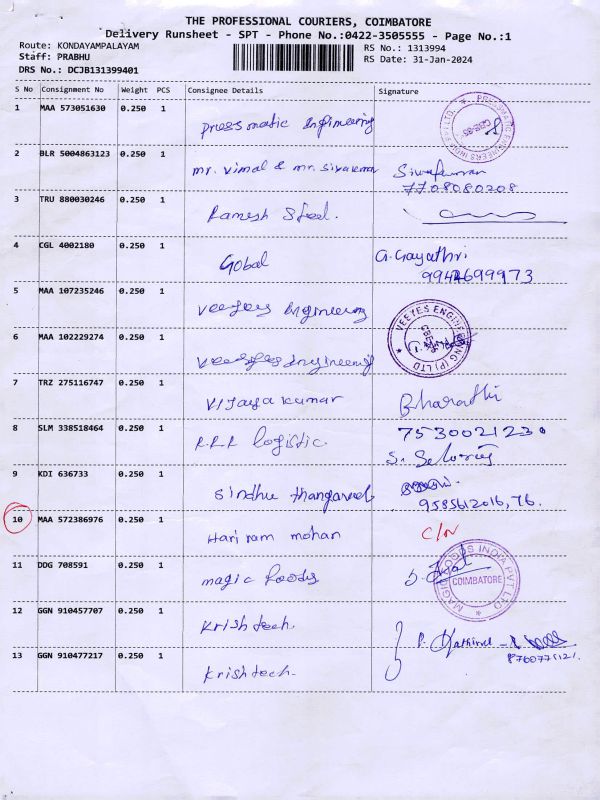 THE PROFESSIONAL COURIERS, COIMBATORE
Delivery Runsheet - SPT - Phone No.:0422-3505555 - Page No.:1
Route: KONDAYAMPALAYAM
RS No.: 1313994
Staff: PRABHU
RS Date: 31-Jan-2024
DRS No.: DCJB131399401
S No Consignment No Weight PCS Consignee Details Signature
1 MAA 573051630 0.250 1
Pressmatic Engineering
2 BLR 5004863123 0.250 1
mr. Vimal & mr. Sivakumar Sivakumar
7708080208
3 TRU 880030246 0.250 1
Ramesh Steel.
4 CGL 4002180 0.250 1
Gobal G. Gayathri
9942699973
5 MAA 107235246 0.250 1
Veeyes Engineering
VEEYES ENGINEERING (P) LTD
6 MAA 102229274 0.250 1
Veeyes Engineering
7 TRZ 275116747 0.250 1
Vijayakumar Bharathi
8 SLM 338518464 0.250 1 7530021230
R.R.R logistic. S. Selvaraj
9 KDI 636733 0.250 1
Sindhu thangavel 9585612016, 76.
10 MAA 572386976 0.250 1
Hari ram mohan C/N
11 DDG 708591 0.250 1
magic foods
MAGIC FOODS INDIA PVT LTD
COIMBATORE
12 GGN 910457707 0.250 1
Krish tech. P. Kathirvel
8760775121.
13 GGN 910477217 0.250 1
Krish tech.